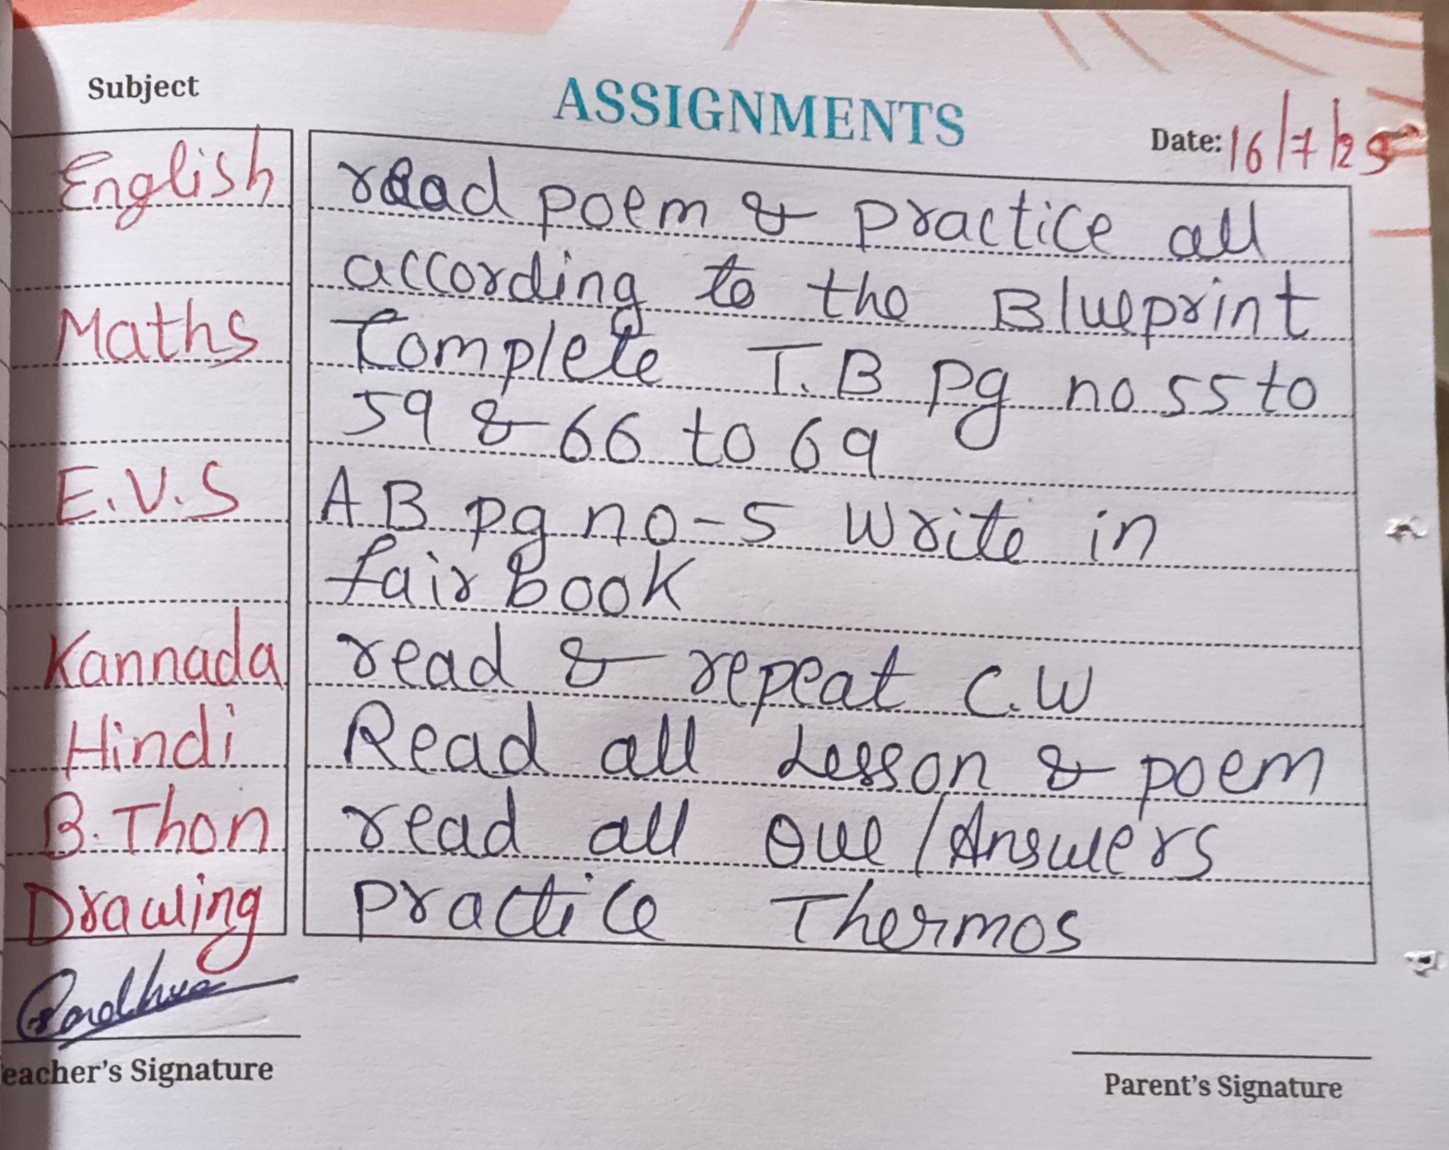 Subject ASSIGNMENTS Date: 16/7/25
English read poem & practice all
according to the Blueprint
Maths Complete T.B pg no 55 to
59 & 66 to 69
E.V.S A B pg no-5 Write in
fair Book
Kannada read & repeat C.W
Hindi Read all Lesson & poem
B.Thon read all Que/Answers
Drawing practice Thermos
eacher's Signature Parent's Signature